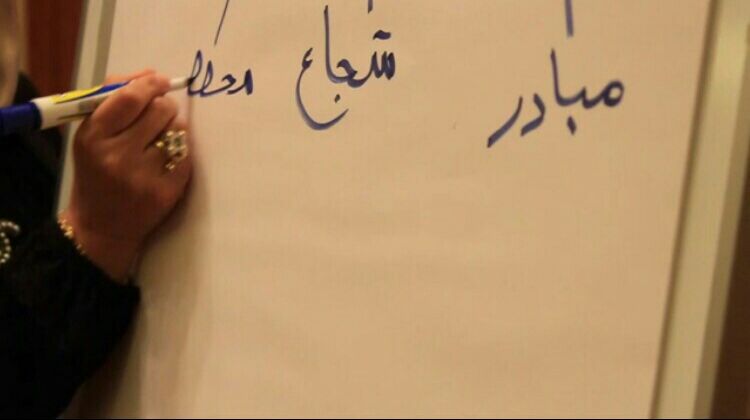 مبادر شجاع